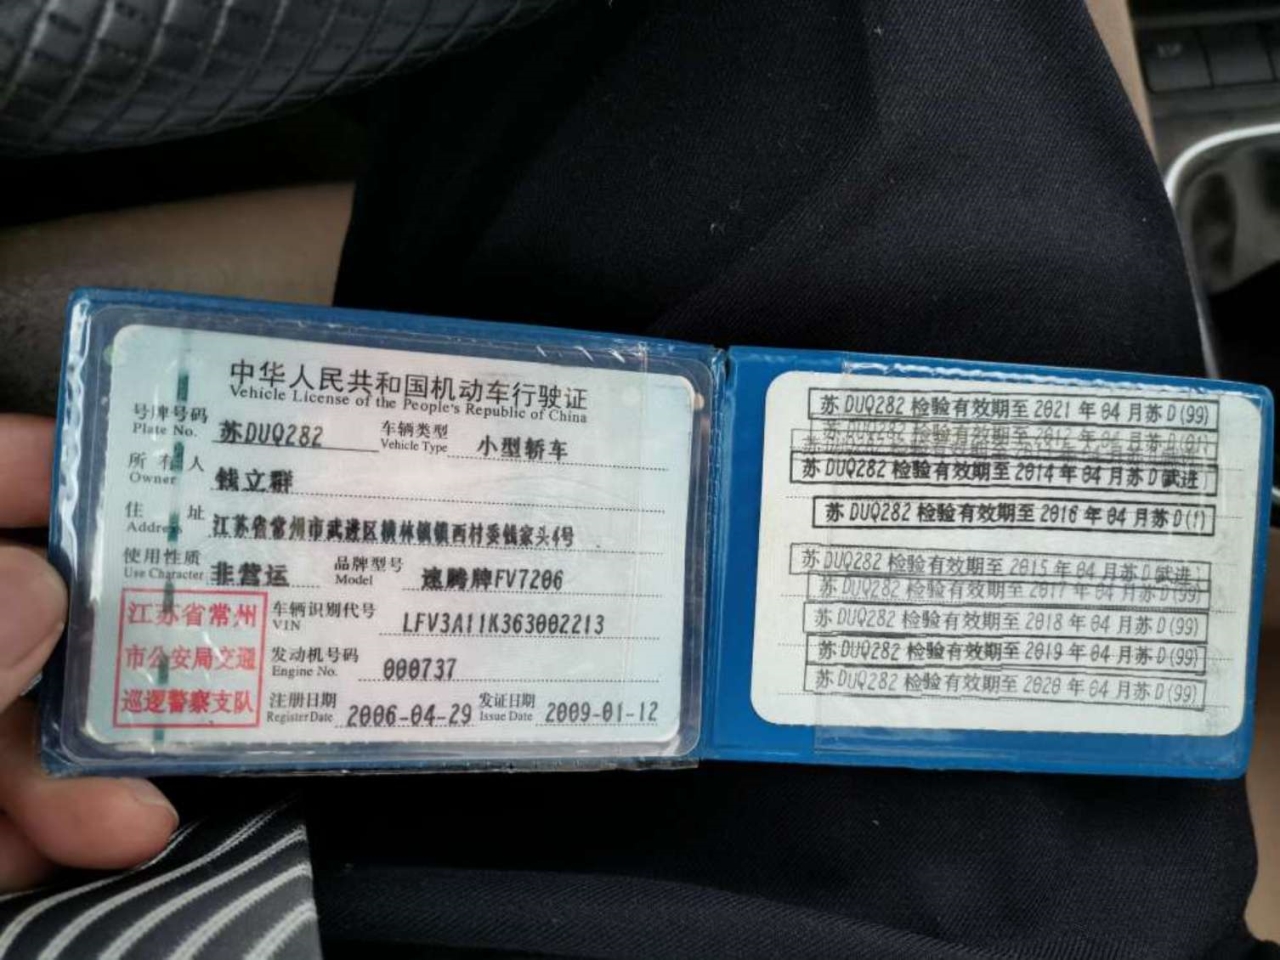 中华人民共和国机动车行驶证
Vehicle License of the People's Republic of China
号牌号码 苏DUQ282 车辆类型 小型轿车
Plate No. Vehicle Type
所有人 钱立群
Owner
住址 江苏省常州市武进区横林镇镇西村委钱家头4号
Address
使用性质 非营运 品牌型号 速腾牌FV7206
Use Character Model
江苏省常州
市公安局交通
巡逻警察支队
车辆识别代号 LFV3A11K363002213
VIN
发动机号码 000737
Engine No.
注册日期 2006-04-29 发证日期 2009-01-12
Register Date Issue Date
苏DUQ282检验有效期至2021年04月苏D(99)
苏DUQ282检验有效期至2012年04月苏D(01)
苏DUQ282检验有效期至2014年04月苏D武进
苏DUQ282检验有效期至2016年04月苏D(1)
苏DUQ282检验有效期至2015年04月苏D武进
苏DUQ282检验有效期至2017年04月苏D(99)
苏DUQ282检验有效期至2018年04月苏D(99)
苏DUQ282检验有效期至2019年04月苏D(99)
苏DUQ282检验有效期至2020年04月苏D(99)